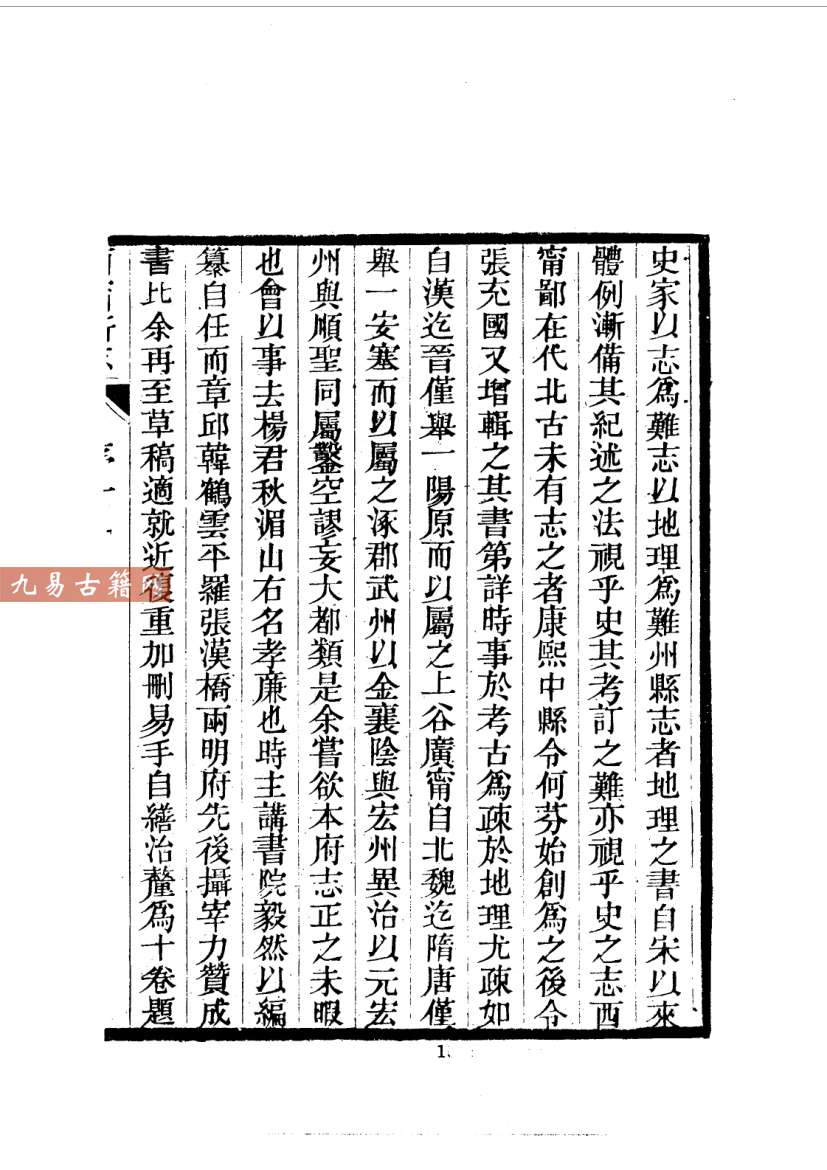 史家以志爲難志以地理爲難州縣志者地理之書自宋以來
體例漸備其紀述之法視乎史其考訂之難亦視乎史之志西
甯鄙在代北古未有志之者康熙中縣令何芬始創爲之後令
張充國又增輯之其書第詳時事於考古爲疎於地理尤疎如
自漢迄晉僅舉一陽原而以屬之上谷廣甯自北魏迄隋唐僅
舉一安塞而以屬之涿郡武州以金襄陰與宏州異治以元宏
州與順聖同屬鑿空謬妄大都類是余嘗欲本府志正之未暇
也會以事去楊君秋湄山右名孝廉也時主講書院毅然以編
纂自任而章邱韓鶴雲平羅張漢橋兩明府先後攝宰力贊成
書比余再至草稿適就近復重加刪易手自繕治釐爲十卷題
九易古籍网
1